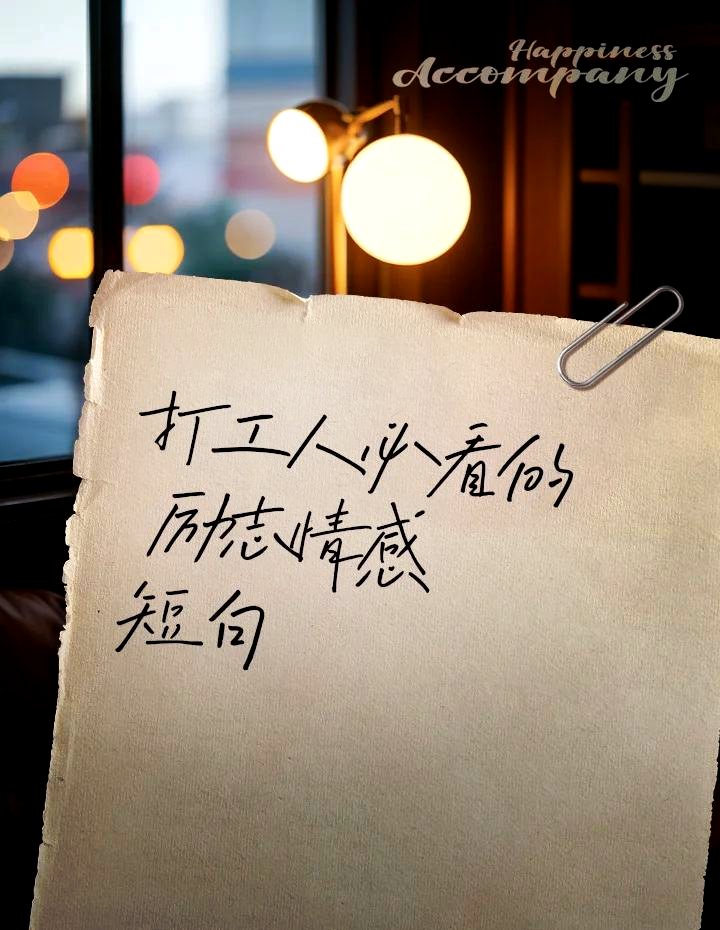 Happiness
Accompany
打工人必看的
励志情感
短句